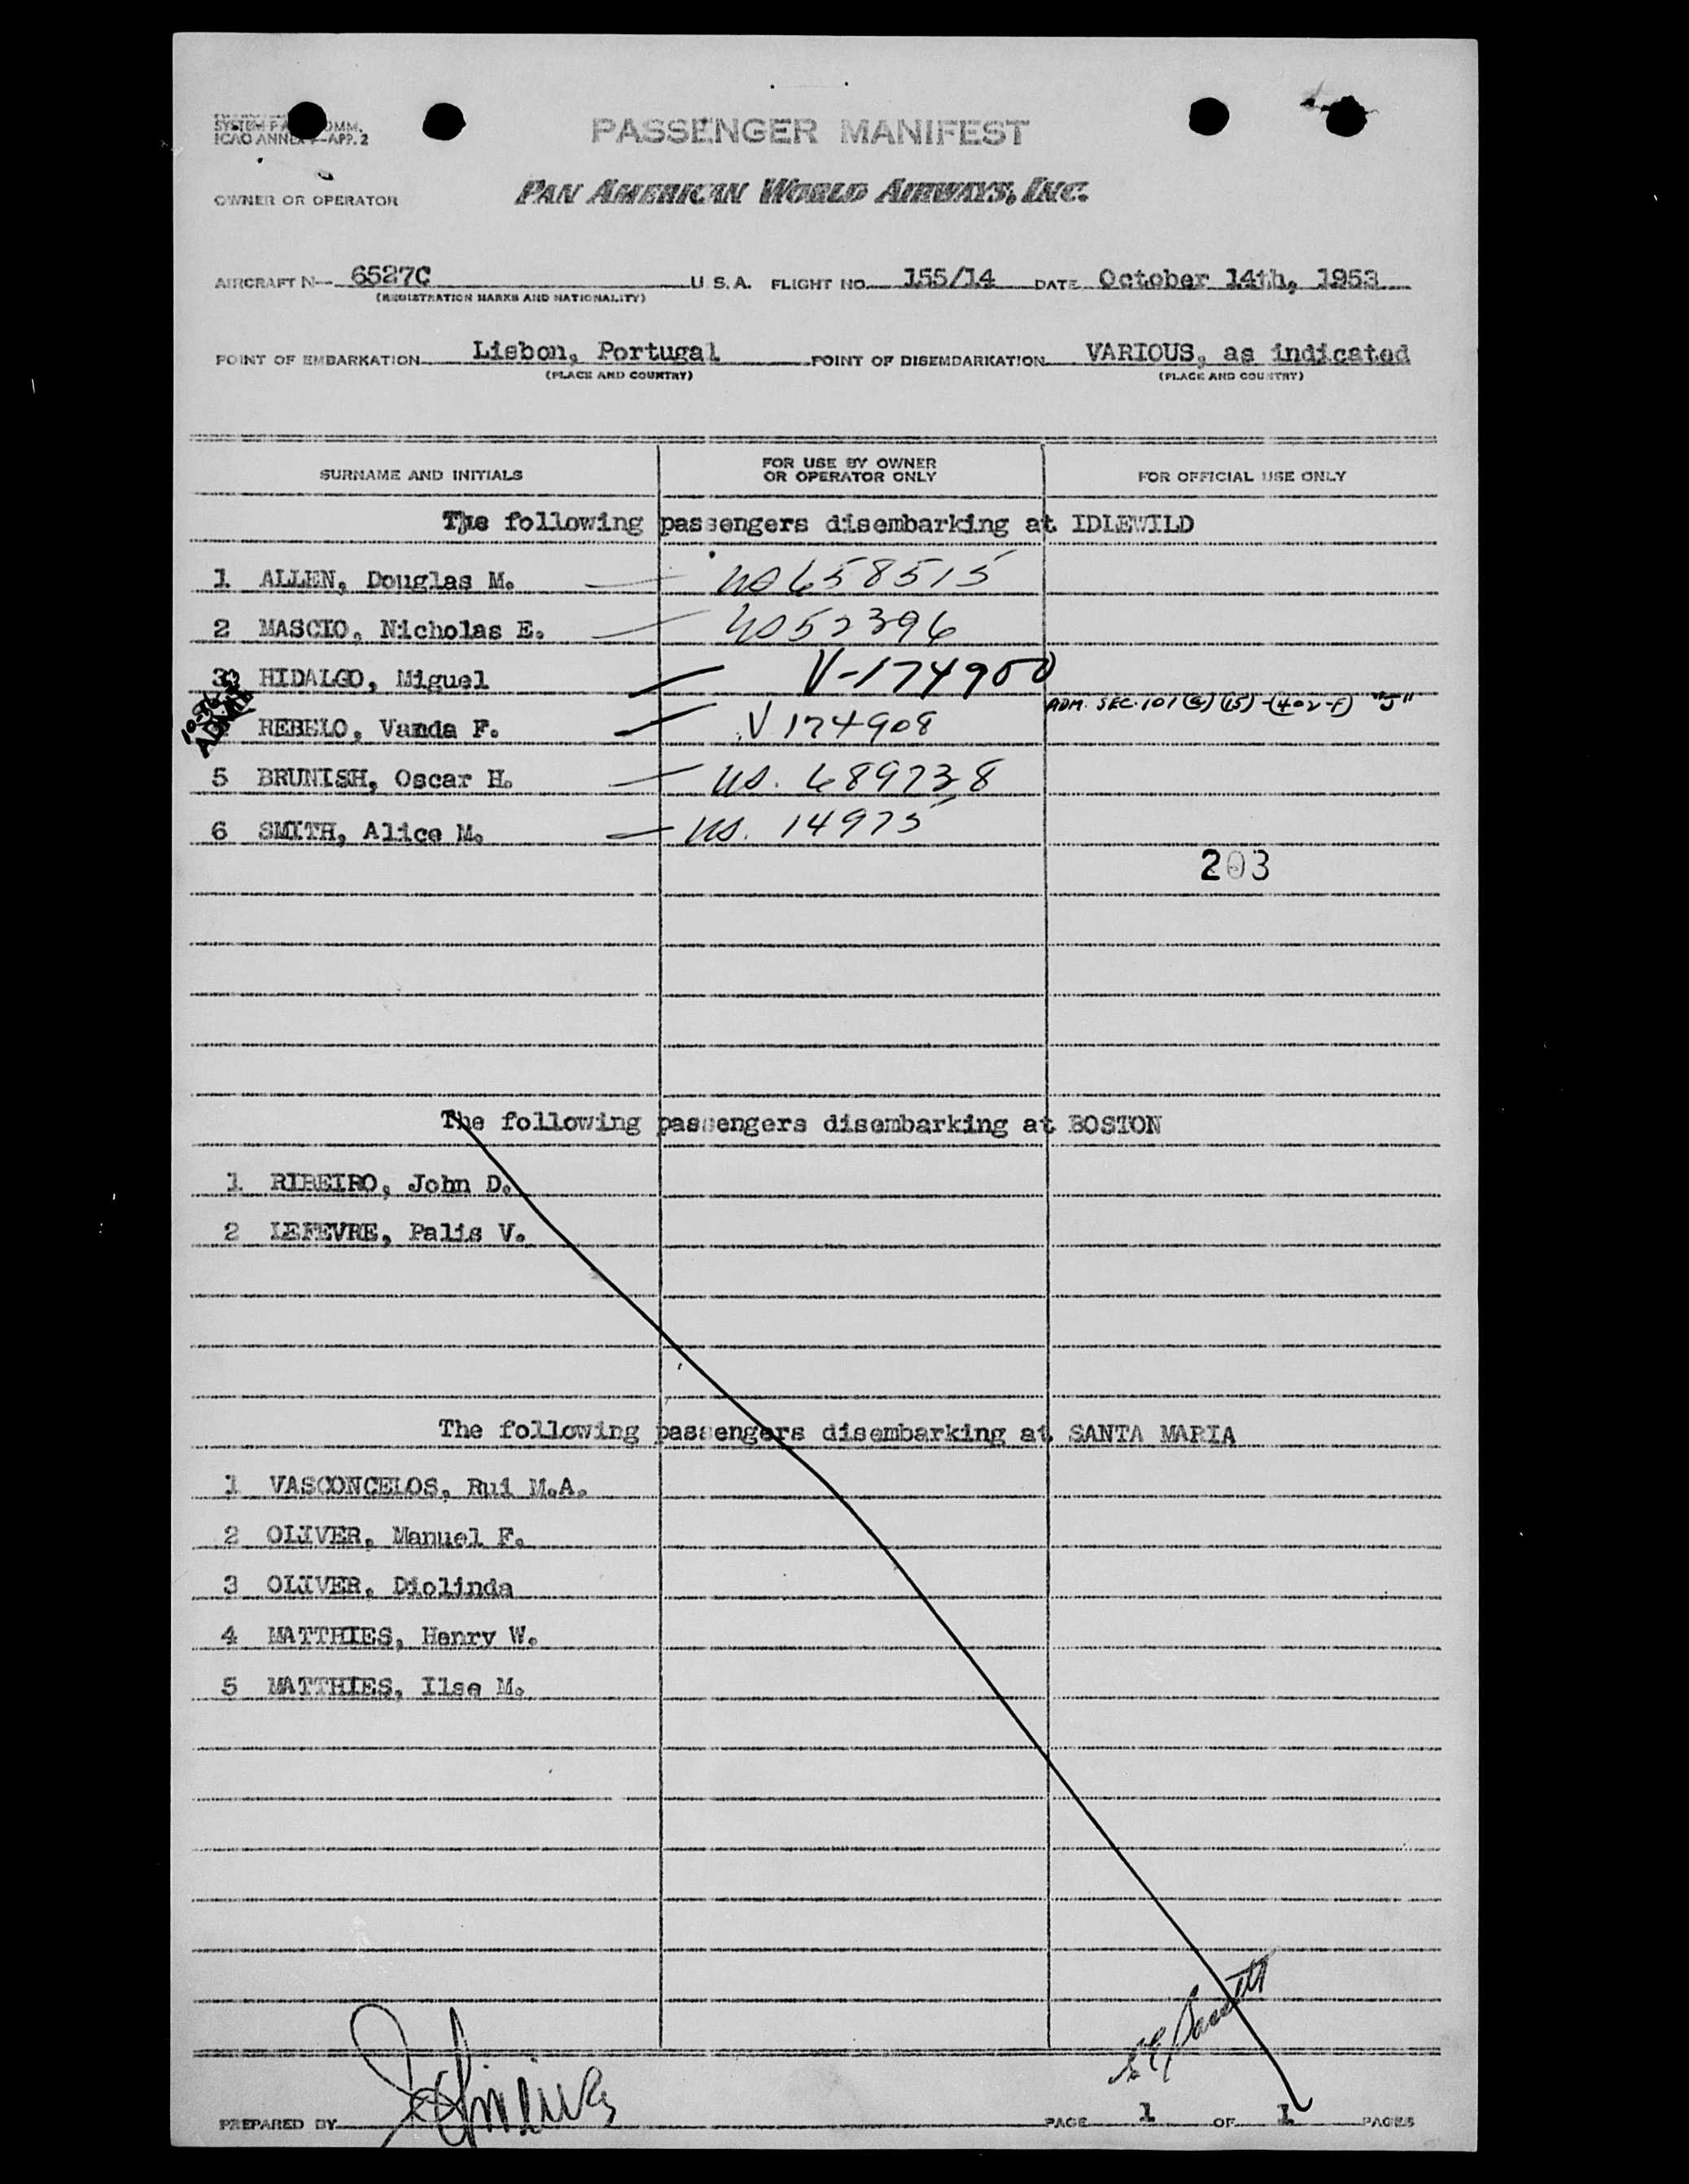 SYSTEM PA OMM.
ICAO ANNEX —APP. 2
PASSENGER MANIFEST
OWNER OR OPERATOR
PAN AMERICAN WORLD AIRWAYS, INC.
AIRCRAFT N— 6527C U.S.A. FLIGHT NO. 155/14 DATE October 14th, 1953
(REGISTRATION MARKS AND NATIONALITY)
POINT OF EMBARKATION Lisbon, Portugal POINT OF DISEMBARKATION VARIOUS, as indicated
(PLACE AND COUNTRY) (PLACE AND COUNTRY)
SURNAME AND INITIALS FOR USE BY OWNER OR OPERATOR ONLY FOR OFFICIAL USE ONLY
The following passengers disembarking at IDLEWILD
1 ALLEN, Douglas M. — US 658515
2 MASCIO, Nicholas E. — US 52396
3 HIDALGO, Miguel — V-174900
ADM. SEC. 101 (a) (15) - (402-F) "J"
REBELO, Vanda F. — V 174908
5 BRUNISH, Oscar H. — US. 689738
6 SMITH, Alice M. — US. 14975
203
The following passengers disembarking at BOSTON
1 RIBEIRO, John D.
2 LEFEVRE, Palis V.
The following passengers disembarking at SANTA MARIA
1 VASCONCELOS, Rui M.A.
2 OLIVER, Manuel F.
3 OLIVER, Diolinda
4 MATTHIES, Henry W.
5 MATTHIES, Ilse M.
PREPARED BY PAGE 1 OF 1 PAGES